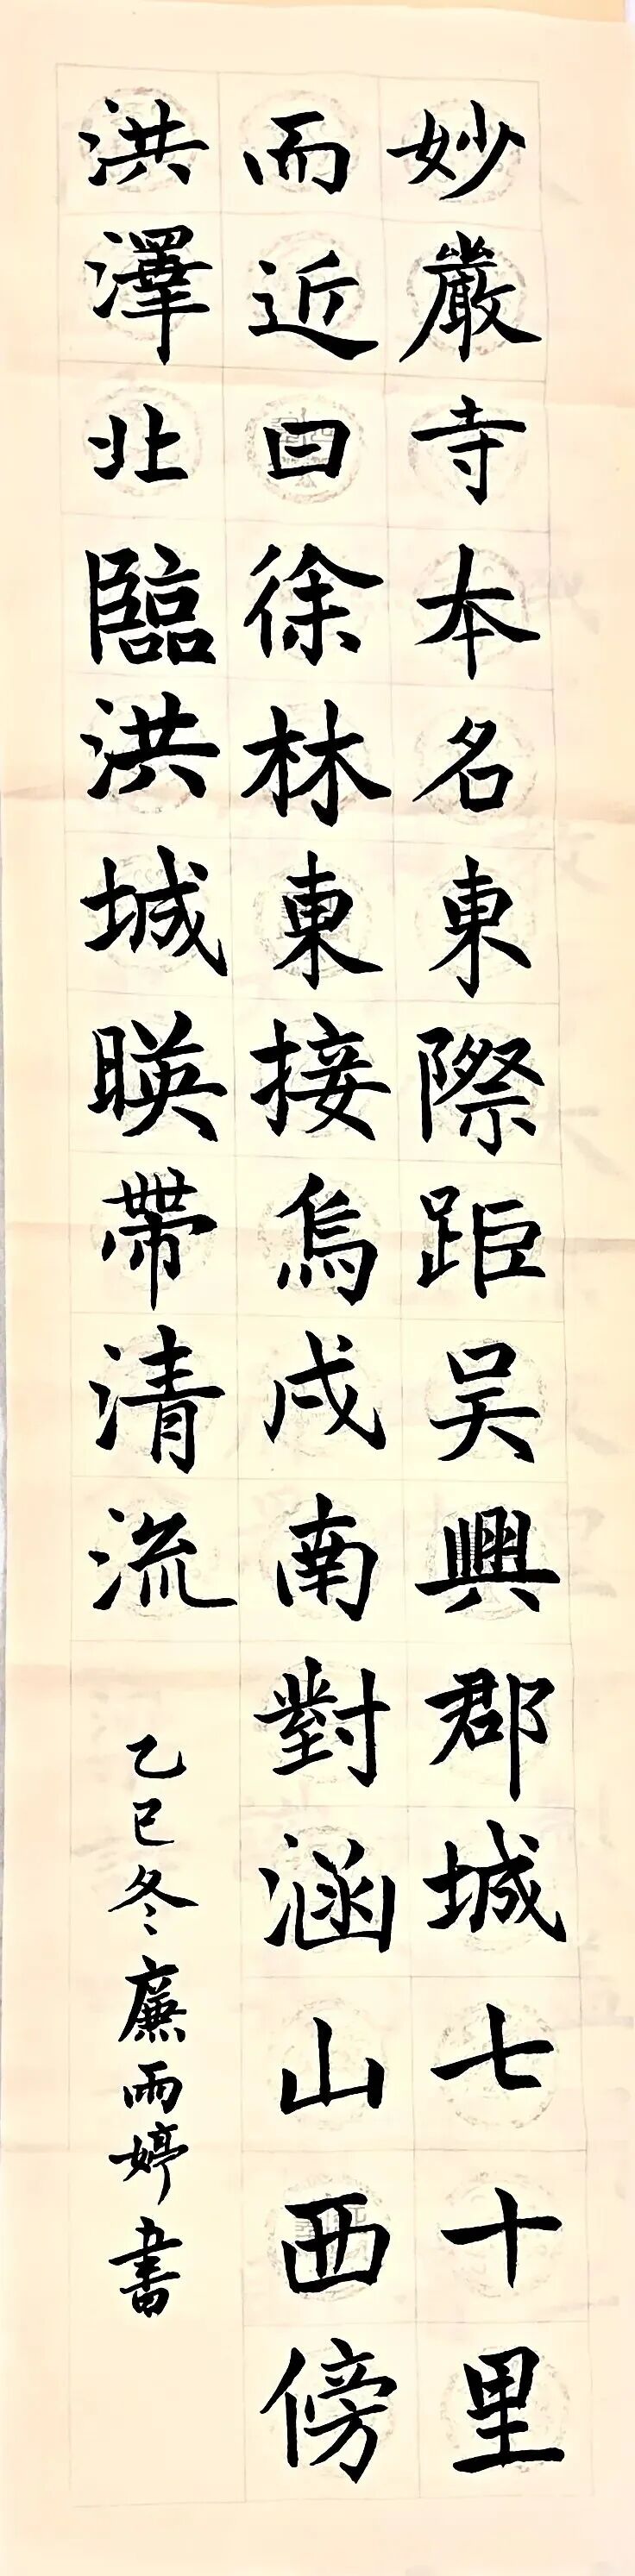 妙嚴寺本名東際距吴興郡城七十里
而近曰徐林東接烏戍南對涵山西傍
洪澤北臨洪城暎帶清流
乙巳冬廉雨婷書